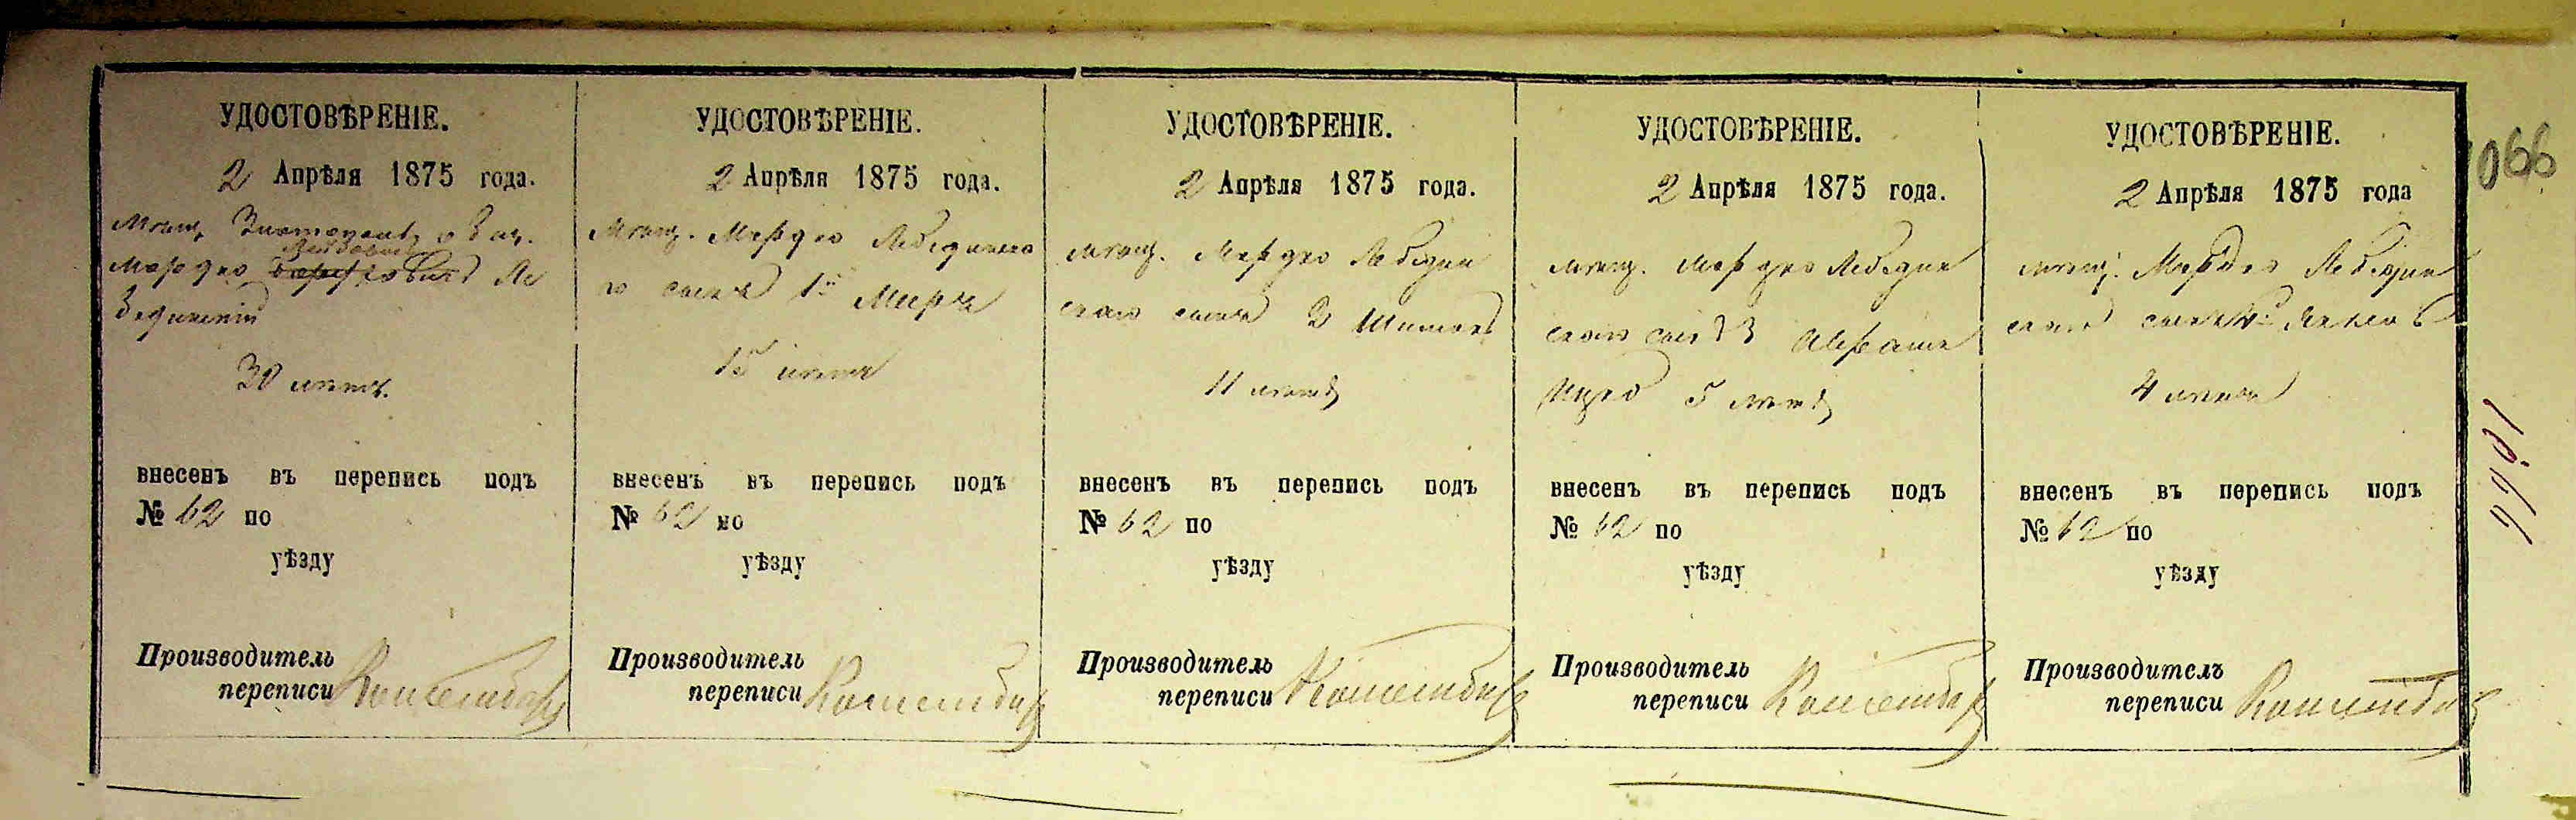 УДОСТОВѢРЕНІЕ.
2 Апрѣля 1875 года.
Мѣщ.
Мордко Ле
бединскій
30 лѣтъ.
внесенъ въ перепись подъ
№ 62 по
уѣзду
Производитель
переписи
УДОСТОВѢРЕНІЕ.
2 Апрѣля 1875 года.
Мѣщ. Мордко Лебединско
го сынъ 1й
15 лѣтъ
внесенъ въ перепись подъ
№ 62 по
уѣзду
Производитель
переписи
УДОСТОВѢРЕНІЕ.
2 Апрѣля 1875 года.
мѣщ. Мордко Лебедин
скаго сынъ 2 Шимонъ
11 лѣтъ
внесенъ въ перепись подъ
№ 62 по
уѣзду
Производитель
переписи
УДОСТОВѢРЕНІЕ.
2 Апрѣля 1875 года.
мѣщ. Мордко Лебедин
скаго сынъ 3 Абрамъ
Ицко 5 лѣтъ
внесенъ въ перепись подъ
№ 62 по
уѣзду
Производитель
переписи
УДОСТОВѢРЕНІЕ.
2 Апрѣля 1875 года
мѣщ. Мордко Лебедин
скаго сынъ 4й
4 лѣтъ
внесенъ въ перепись подъ
№ 62 по
уѣзду
Производитель
переписи
1066